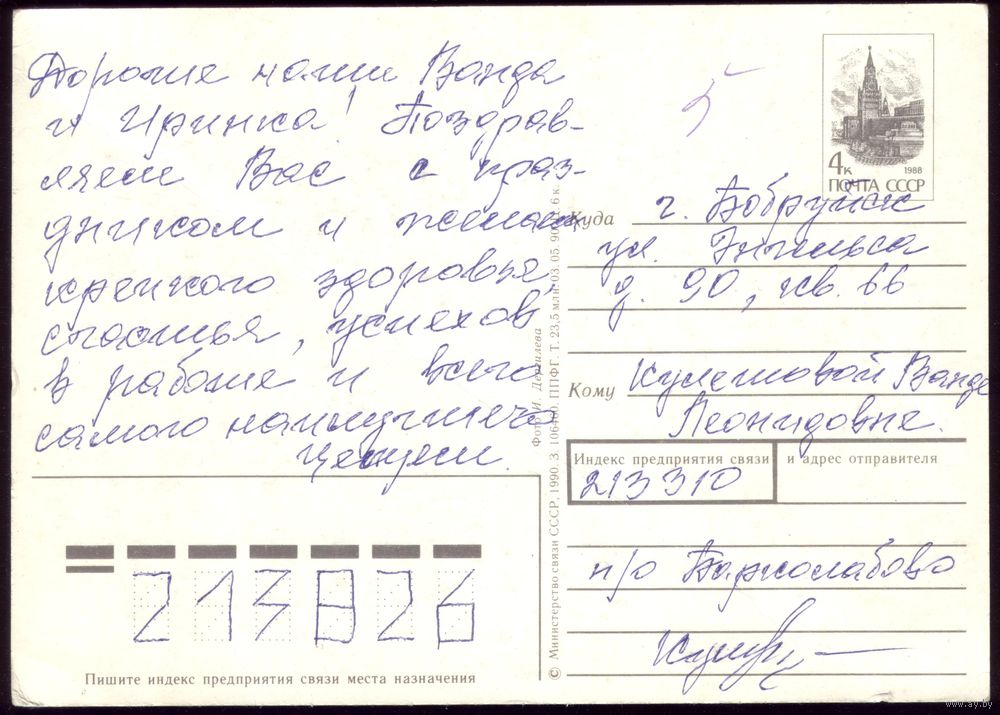 Дорогие наши Ванда
и Иринка! Поздрав-
ляем Вас с праз-
дником и желаем
крепкого здоровья,
счастья, успехов
в работе и всего
самого наилучшего
Целуем.
4к
1988
ПОЧТА СССР
Куда г. Бобруйск
ул. Энгельса
д. 90, кв. 66
Кому Кулешовой Ванде
Леонидовне.
Индекс предприятия связи и адрес отправителя
213310
п/о Барколабово
213826
Пишите индекс предприятия связи места назначения
© Министерство связи СССР, 1990. З. 106480. ППФГ. Т. 23,5 млн. 03. 05. 90. 6 к.
www.ay.by